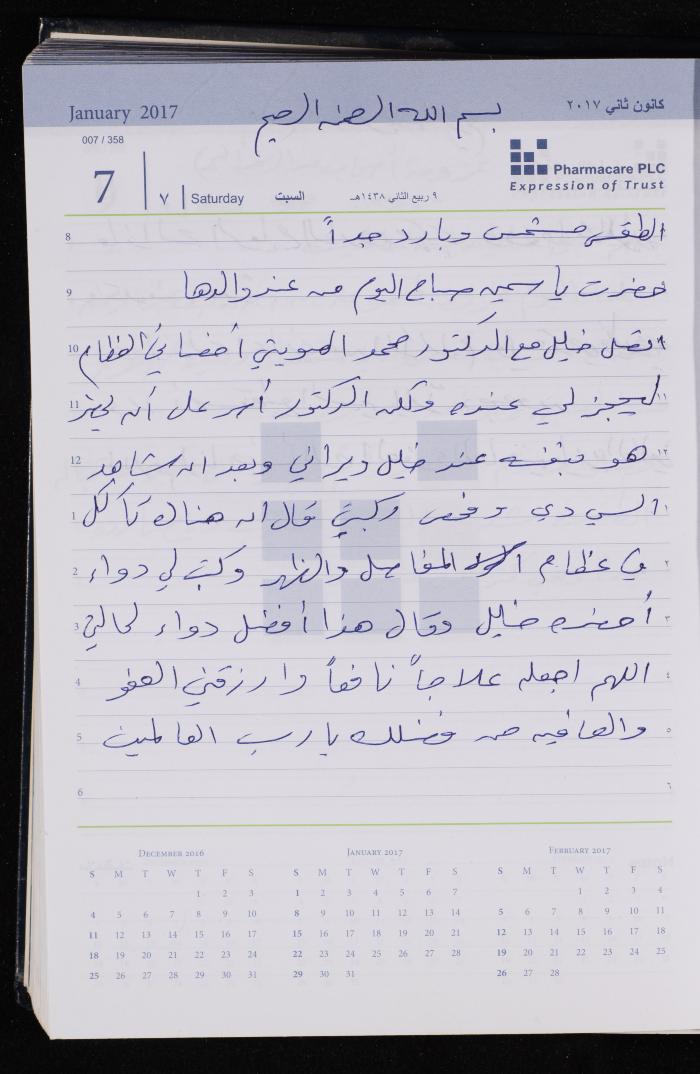 January 2017
بسم الله الرحمن الرحيم
كانون ثاني ٢٠١٧
007 / 358
7
٧
Saturday
السبت
٩ ربيع الثاني ١٤٣٨هـ
Pharmacare PLC
Expression of Trust
8 الطقس مشمس وبارد جداً
9 حضرت ياسمين صباح اليوم من عند والدها
10 اتصل خليل مع الدكتور محمد أخصائي العظام
11 ليحجز لي عنده ولكن الدكتور أصر على أن يحضر ١١
12 هو بنفسه عند خليل ويراني وبعد ان شاهد ١٢
1 السي دي وفحص ركبتي قال ان هناك تآكل ١
2 في عظام المفاصل والظهر وكتب لي دواء ٢
3 أحضره خليل وقال هذا أفضل دواء لحالتي ٣
4 اللهم اجعله علاجاً نافعاً وارزقني العفو ٤
5 والعافيه من فضلك يا رب العالمين ٥
6 ٦
December 2016
S M T W T F S
1 2 3
4 5 6 7 8 9 10
11 12 13 14 15 16 17
18 19 20 21 22 23 24
25 26 27 28 29 30 31
January 2017
S M T W T F S
1 2 3 4 5 6 7
8 9 10 11 12 13 14
15 16 17 18 19 20 21
22 23 24 25 26 27 28
29 30 31
February 2017
S M T W T F S
1 2 3 4
5 6 7 8 9 10 11
12 13 14 15 16 17 18
19 20 21 22 23 24 25
26 27 28